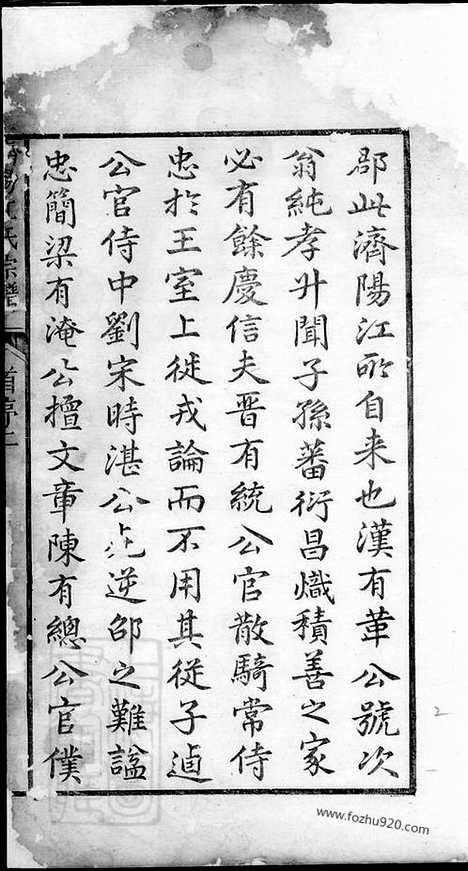 郡此濟陽江所自来也漢有革公號次
翁純孝升聞子孫蕃衍昌熾積善之家
必有餘慶信夫晋有統公官散騎常侍
忠於王室上徙戎論而不用其従子逌
公官侍中劉宋時湛公逆邵之難諡
忠簡梁有淹公擅文章陳有總公官僕
陽氏宗譜
首序二
www.fozhu920.com